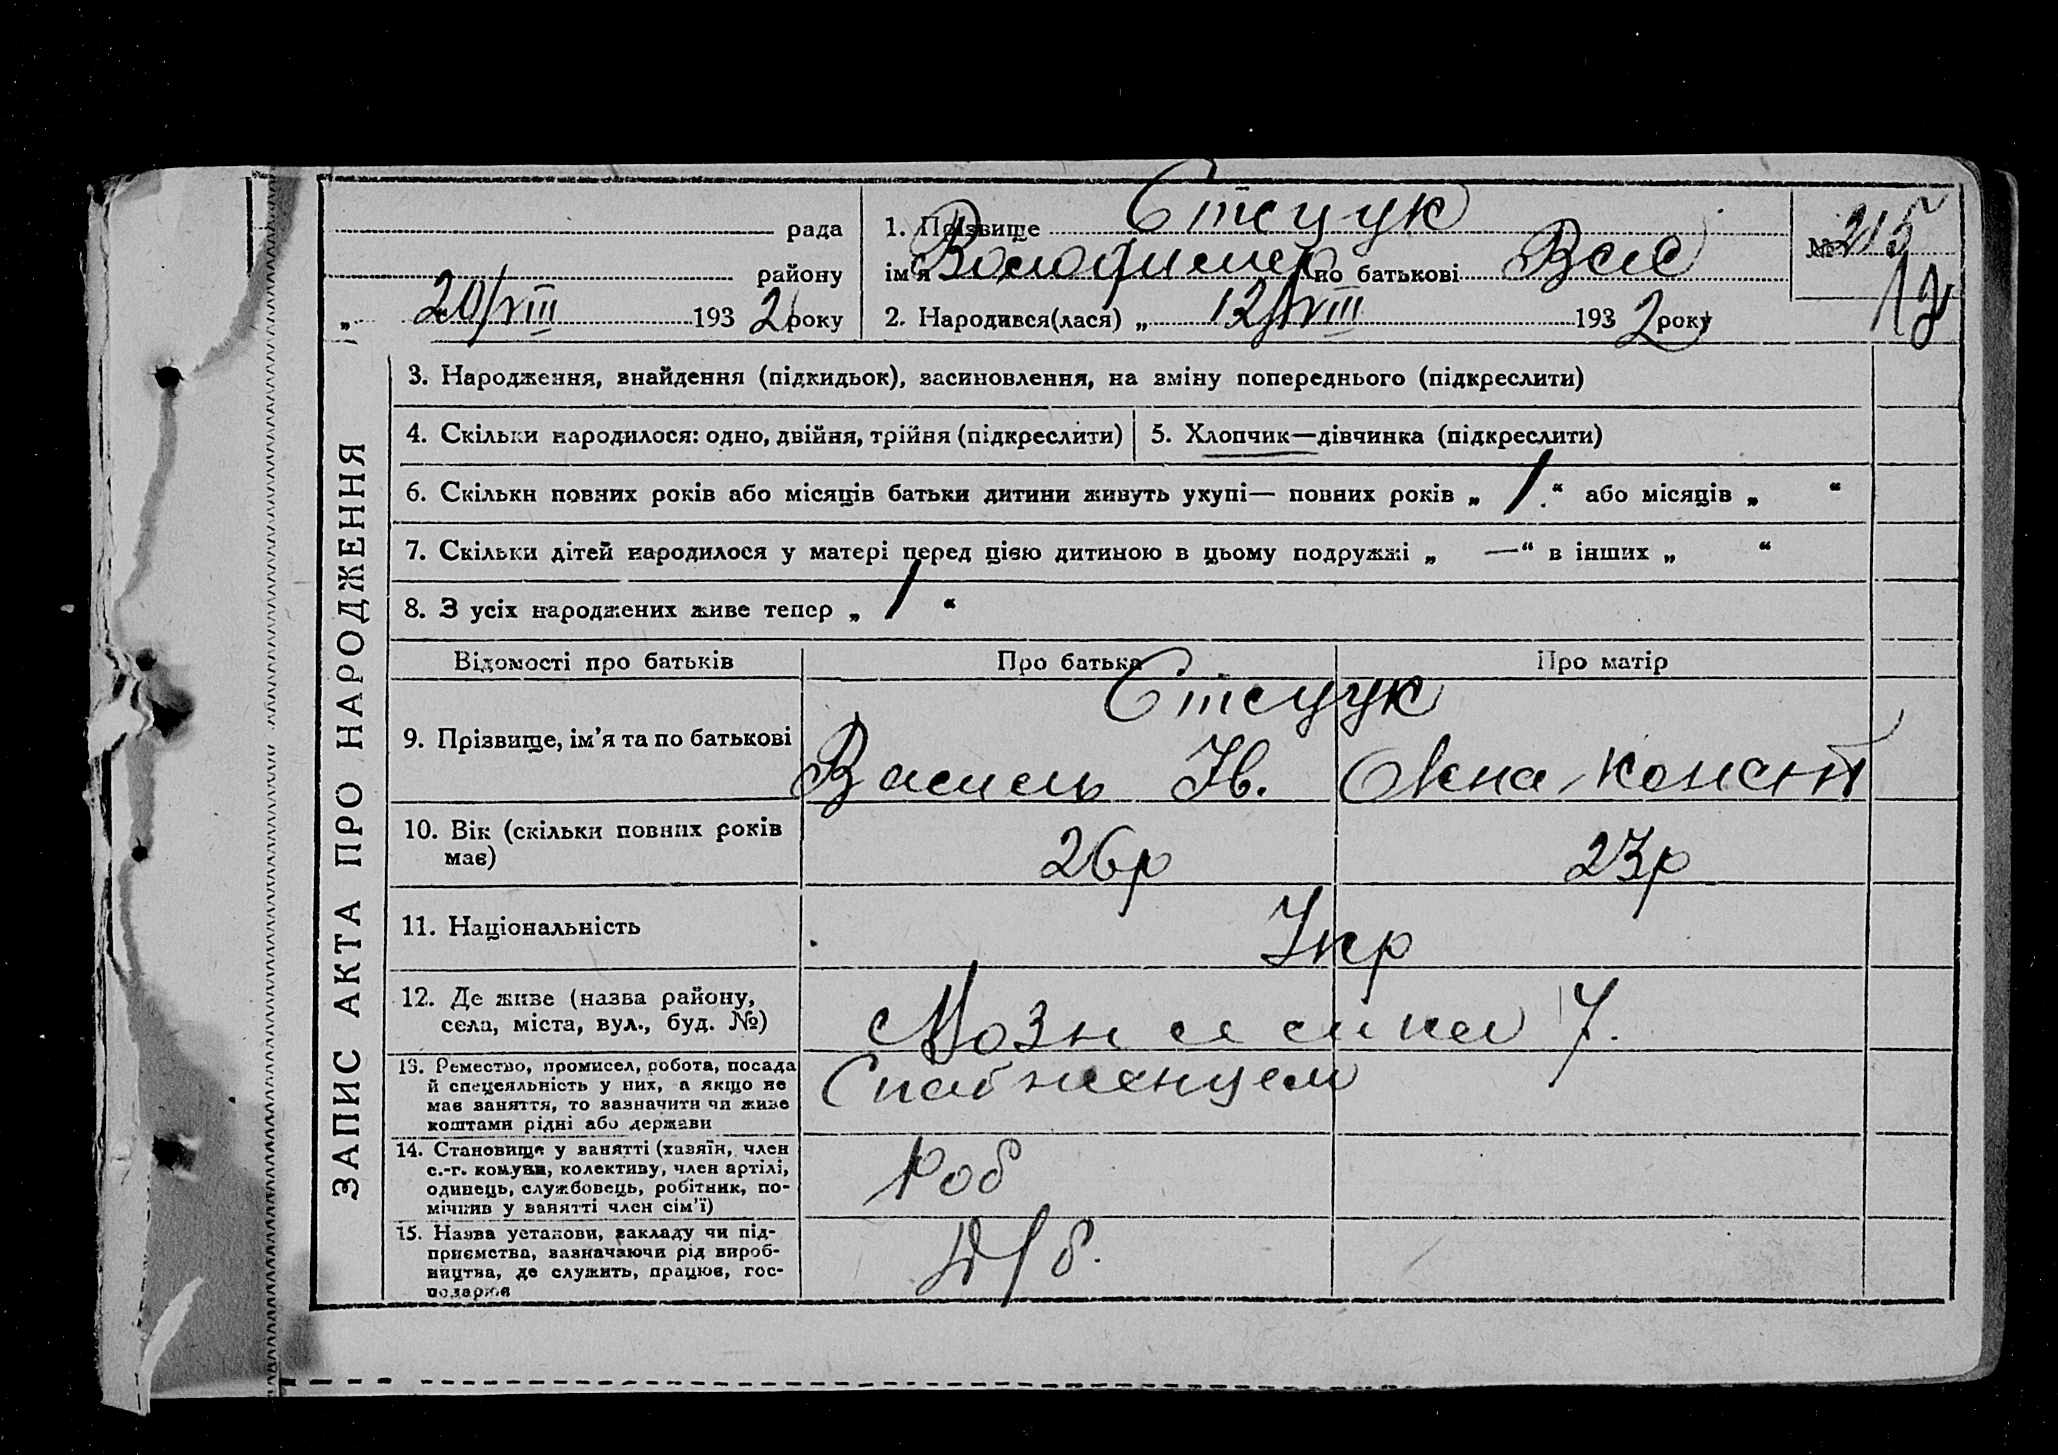 рада
району
„ 20/VIII 1932 року
1. Прізвище Стецук
ім'я Володимер по батькові Вас
2. Народився(лася) „ 12/VIII 1932 року
№ 215
ЗАПИС АКТА ПРО НАРОДЖЕННЯ
3. Народження, знайдення (підкидьок), засиновлення, на зміну попереднього (підкреслити)
4. Скільки народилося: одно, двійня, трійня (підкреслити) 5. Хлопчик—дівчинка (підкреслити)
6. Скільки повних років або місяців батьки дитини живуть укупі— повних років „ 1 “ або місяців „ “
7. Скільки дітей народилося у матері перед цією дитиною в цьому подружжі „ — “ в інших „ “
8. З усіх народжених живе тепер „ 1 “
Відомості про батьків Про батька Про матір
Стецук
9. Прізвище, ім'я та по батькові Василь Ів. Анна Конст
10. Вік (скільки повних років
має) 26р 23р
11. Національність Укр
12. Де живе (назва району,
села, міста, вул., буд. №) 7.
13. Ремество, промисел, робота, посада
й спецеяльність у них, а якщо не
має заняття, то зазначити чи живе
коштами рідні або держави
14. Становище у занятті (хазяїн, член
с.-г. комуни, колективу, член артілі,
одинець, службовець, робітник, по-
мічник у занятті член сім'ї) Роб
15. Назва установи, закладу чи під-
приємства, зазначаючи рід вироб-
ництва, де служить, працює, гос-
подарює